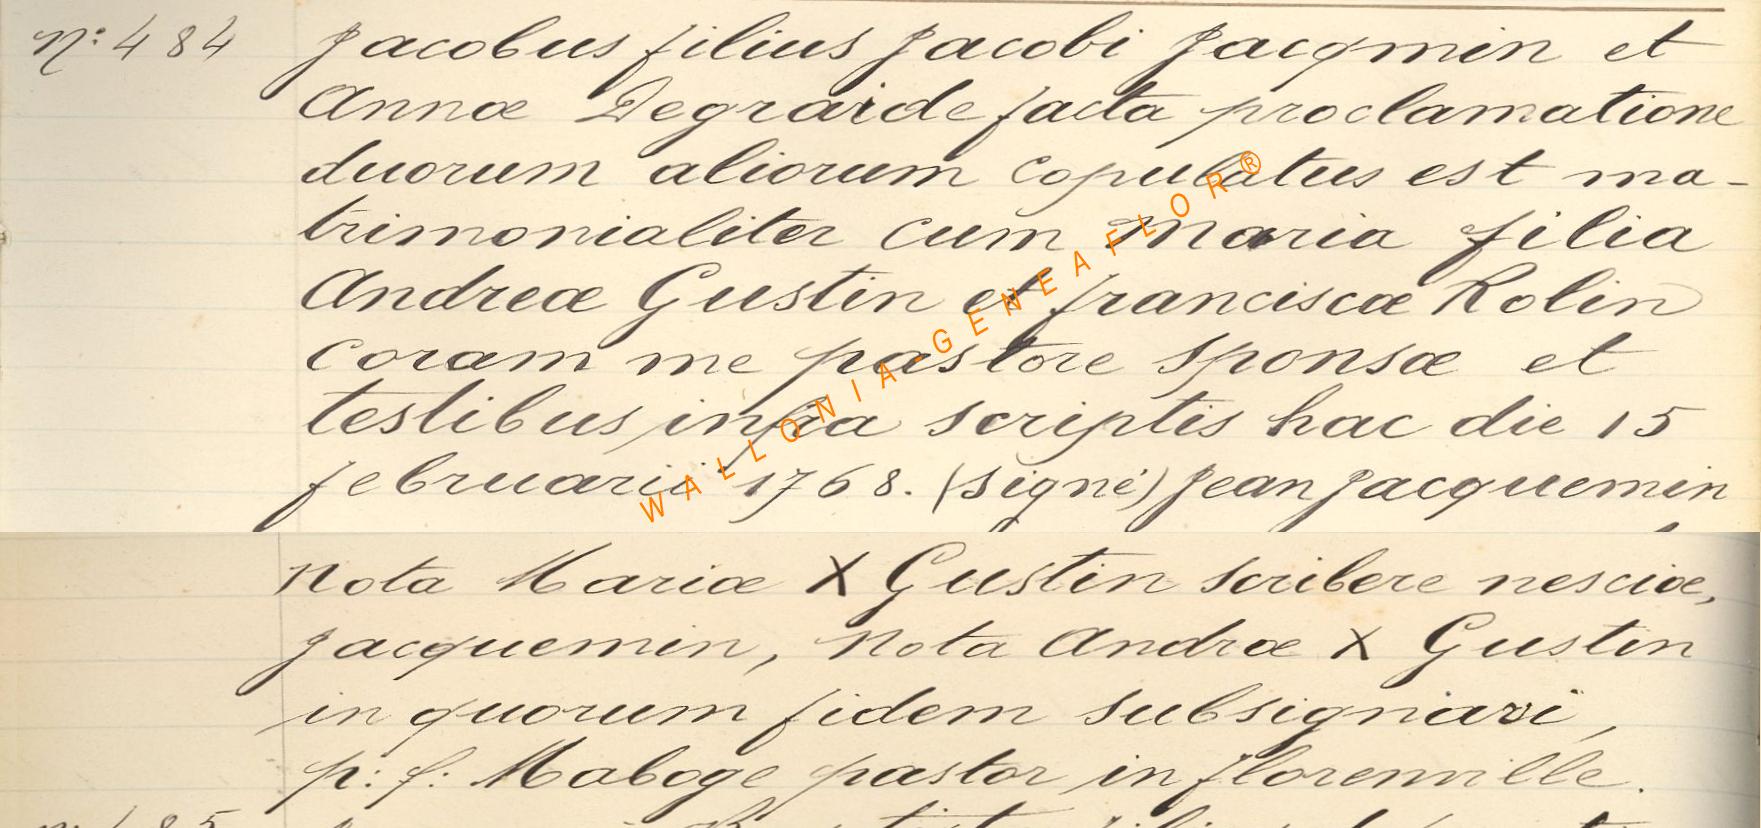 N.° 484 Jacobus filius Jacobi Jacqmin et
Annæ Degraide facta proclamatione
duorum aliorum copulatus est ma-
trimonialiter cum Maria filia
Andreæ Gustin et franciscæ Rolin
coram me pastore sponsæ et
testibus infra scriptis hac die 15
februarii 1768. (signé) Jean Jacquemin
Nota Mariæ X Gustin scribere nesciæ,
Jacquemin, Nota Andræ X Gustin
in quorum fidem subsignavi,
p: f: Maboge pastor in florenville.
WALLONIA-GENEAFLOR®